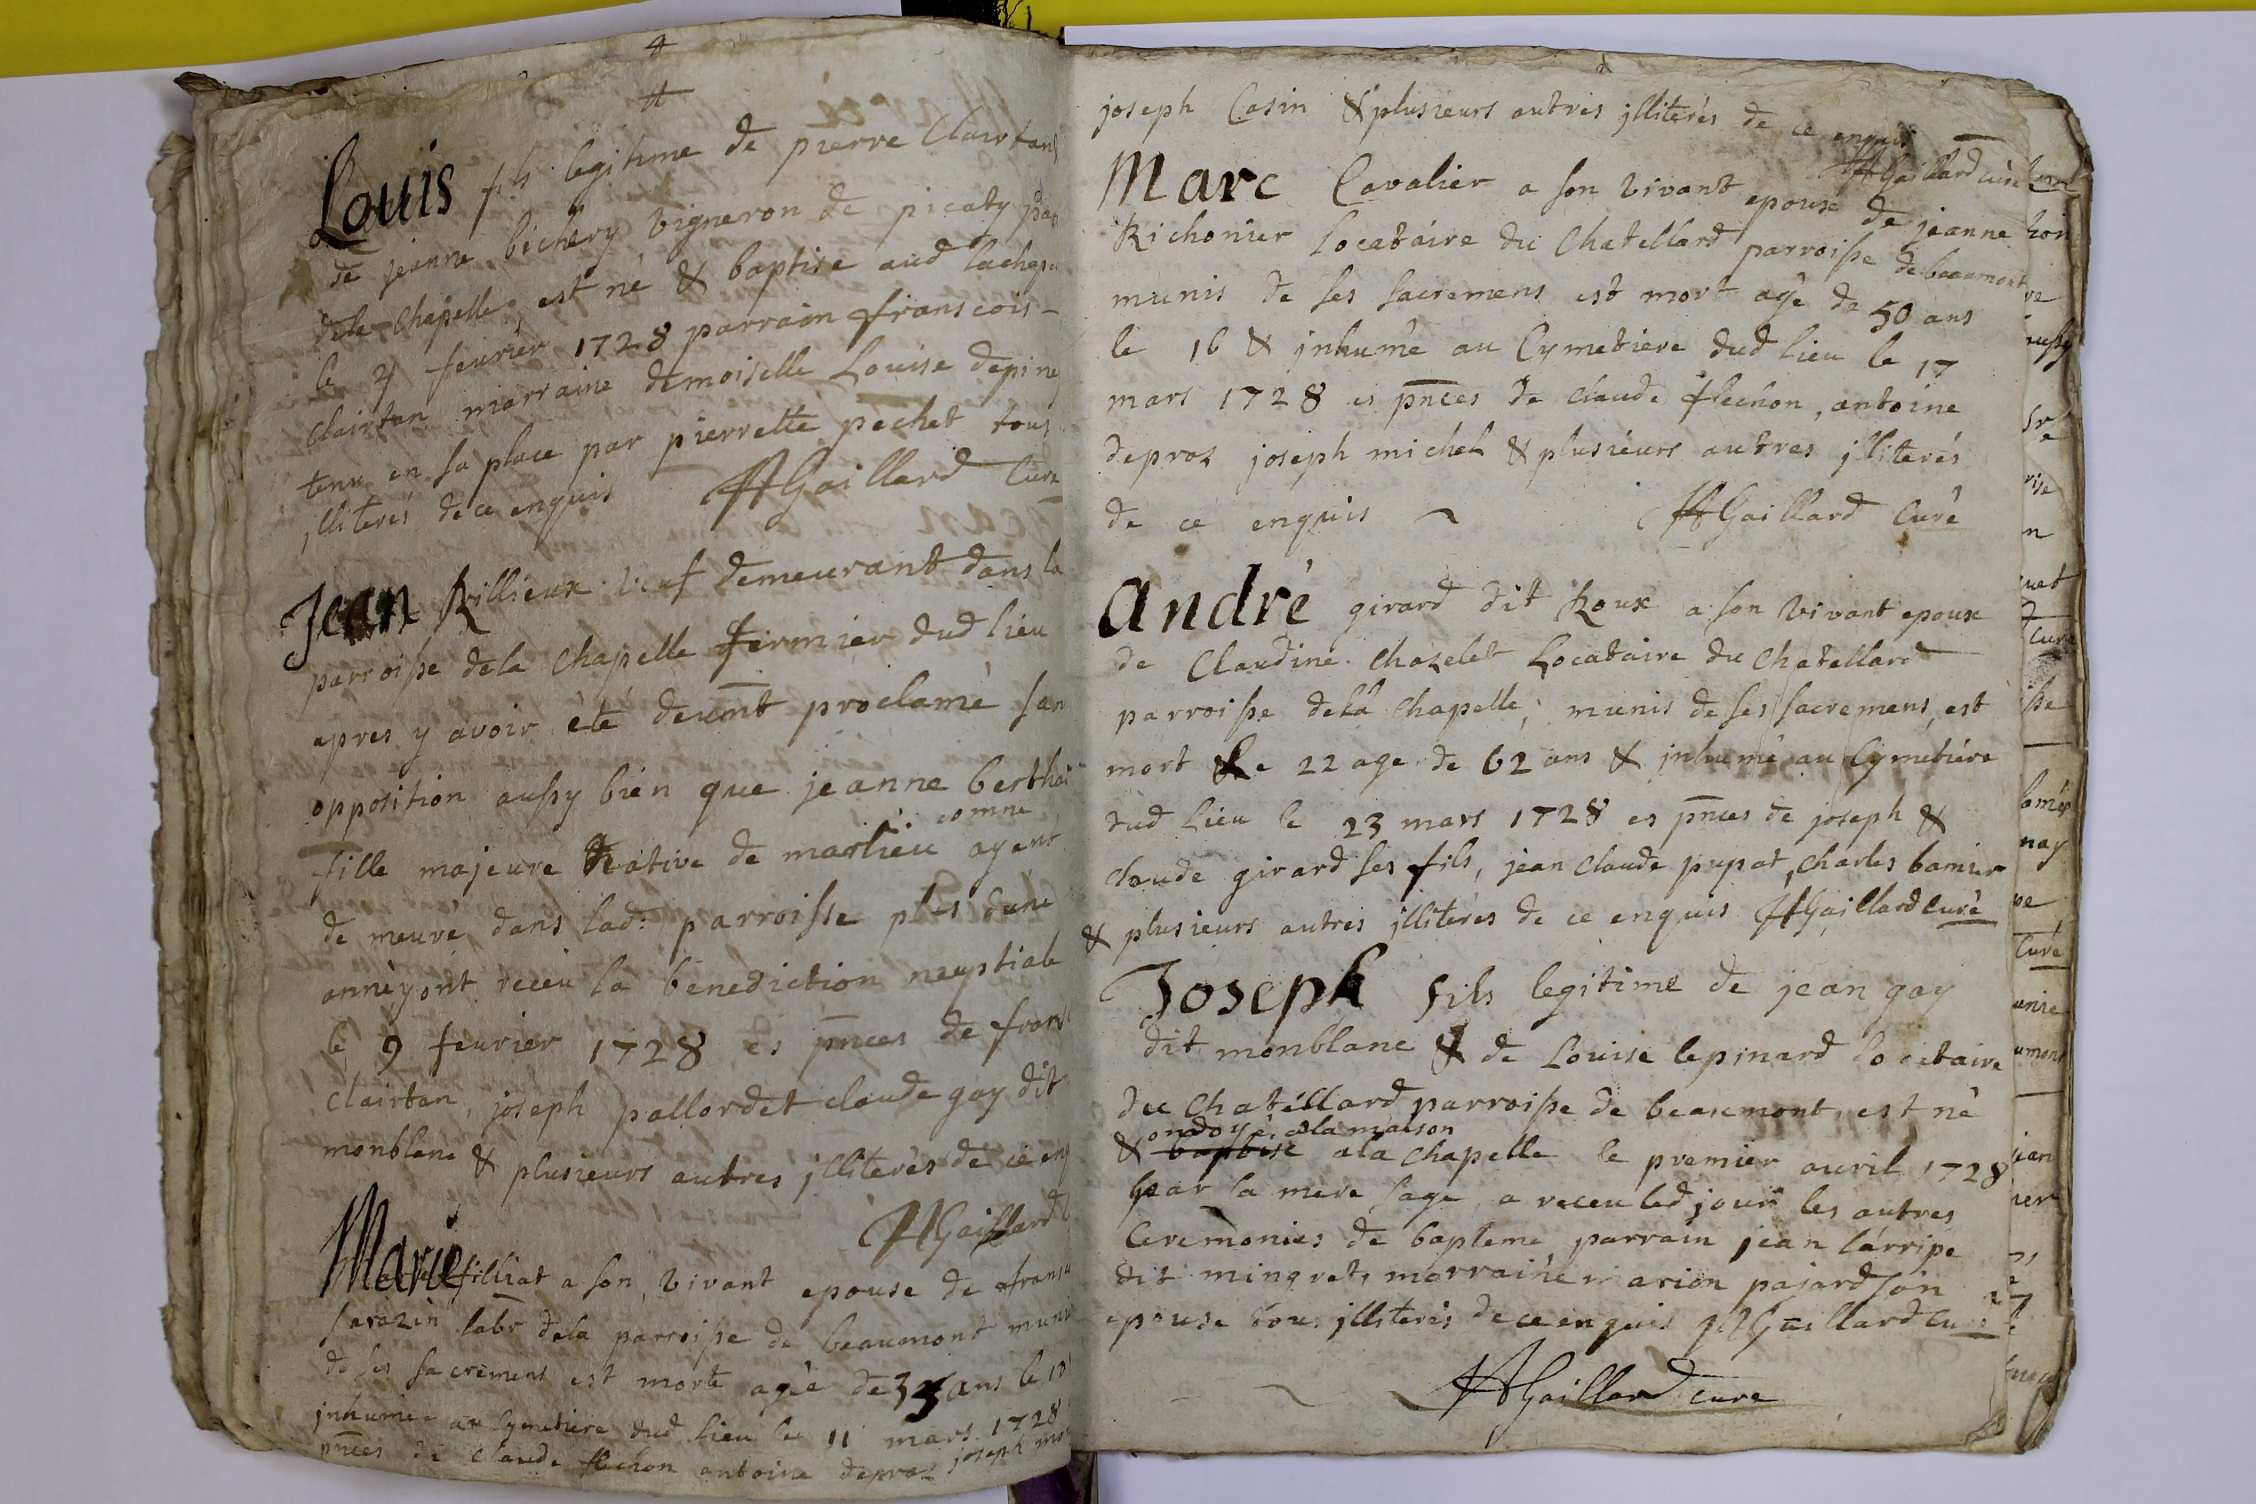 4
Louis fils legitime de pierre Clairtan
de jeanne bichery vigneron de picaty
dela Chapelle, est né & baptise aud lachape
le 4 feurier 1728 parrain franscois
Clairtan marraine demoiselle Louise depine
tenu en sa place par pierrette pechet tous
jlliterés de ce enquis AGaillard Curé
Jean Rillieux veuf demeurant dans la
parroisse dela chapelle fermier dud lieu
apres y avoir eté deumt proclamé san
opposition aussy bien que jeanne berthai
fille majeure native de marlieu comme ayent
de meuré dans lad: parroisse plus dune
année, ont receu la benediction neuptiale
le 9 feurier 1728 es pnces de frans
Clairtan, joseph pallordet claude gay dit
monblanc & plusieurs autres jlliterés de ce enq
AGaillard
Marie filliat a son vivant epouse de frans
sarazin labr dela parroisse de beaumont munie
de ses sacremens est morte agée de 35 ans le 10
jnhumée au Cymetiere dud lieu le 11 mars 1728
pnces de claude flechon antoine depraz joseph
joseph Casin & plusieurs autres jlliterés de ce enquis
AGaillard curé
Marc Cavalier a son vivant epoux de jeanne
Richonier Locataire du Chatellard parroisse de beaumont
munis de ses sacremens est mort agé de 50 ans
le 16 & jnhumé au Cymetiere dud lieu le 17
mars 1728 es pnces de claude flechon, antoine
depraz joseph michel & plusieurs autres jlliterés
de ce enquis AGaillard Curé
André girard dit Roux a son vivant epoux
de Claudine Chazelet Locataire du Chatellard
parroisse dela Chapelle, munis de ses sacremens, est
mort le 22 age de 62 ans & jnhumé au Cymetiére
dud Lieu le 23 mars 1728 es pnces de joseph &
claude girard ses fils, jean claude pupat, charles banier
& plusieurs autres jlliterés de ce enquis AGaillard curé
Joseph fils legitime de jean gay
dit monblanc & de Louise lepinard locataire
du Chatéllard parroisse de beaumont, est né
ondoyé, a la maison
& baptisé ala Chapelle le premier auril 1728
par la mere sage, a receu led jour les autres
Ceremonies de bapteme, parrain jean larripe
dit mingret, marraine marion pajard son
epouse tous jlliterés de ce enquis AGaillard Curé
AGaillard cure